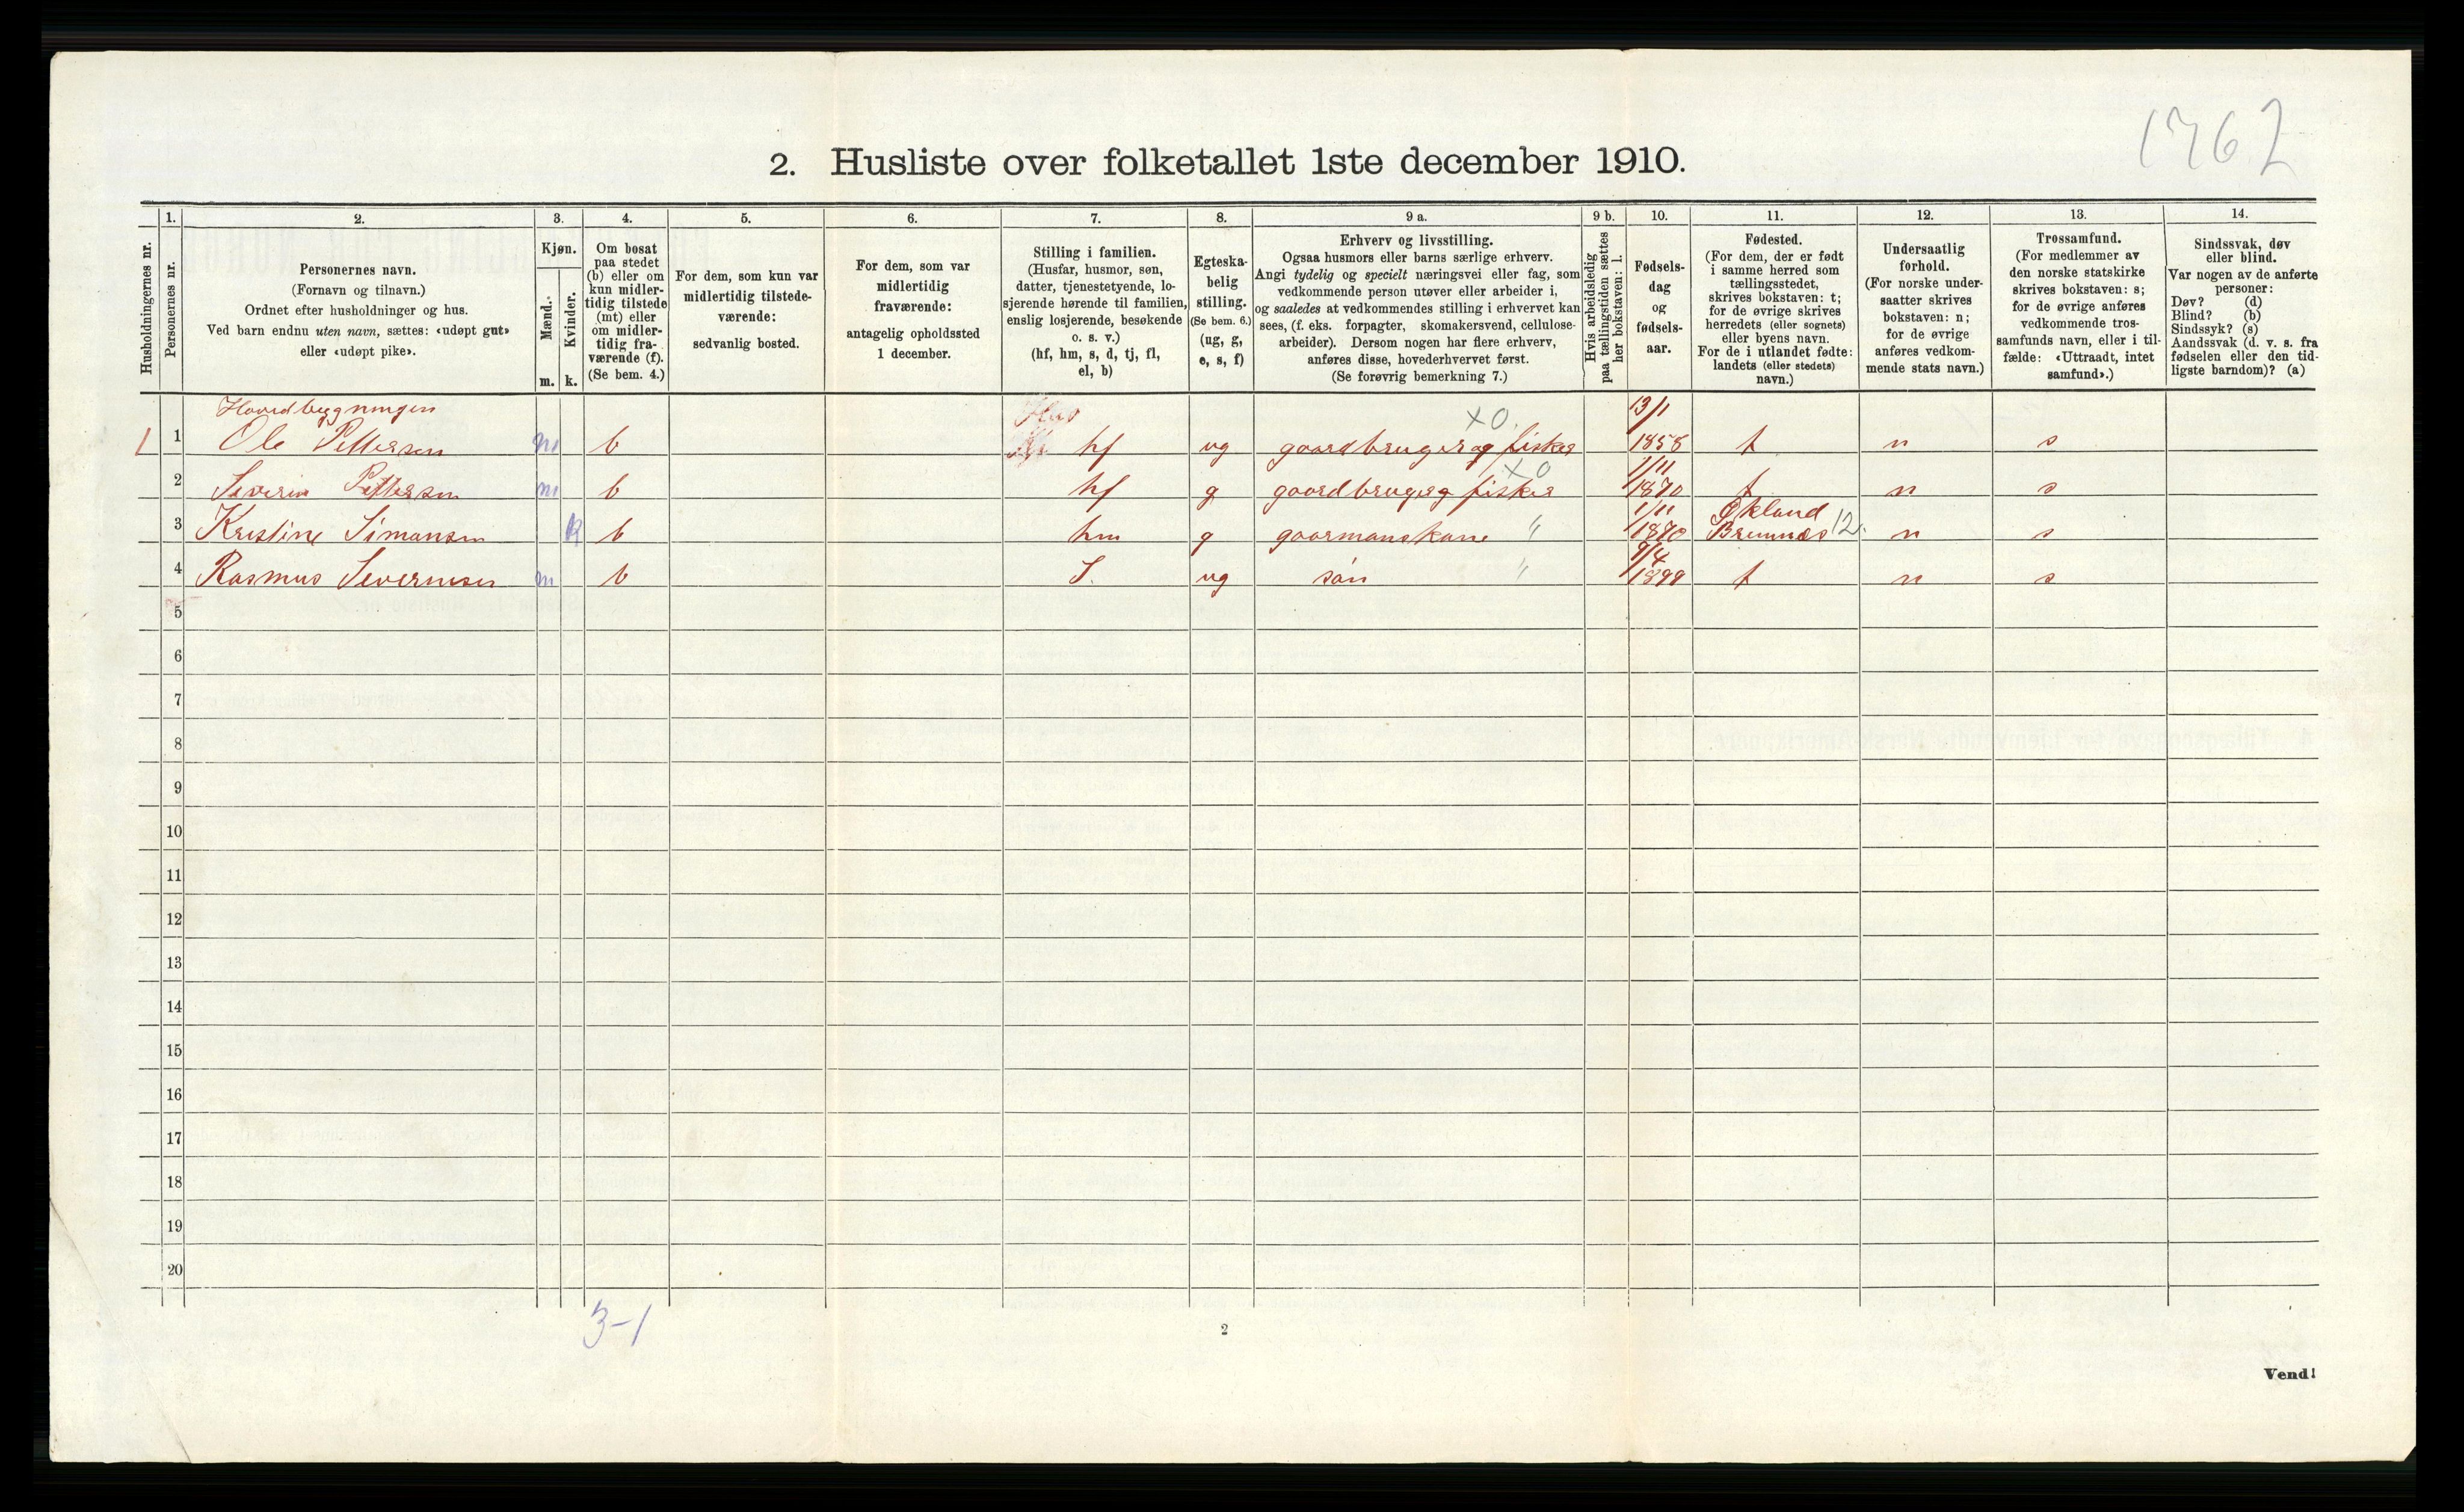 1762
2. Husliste over folketallet 1ste december 1910.
Husholdningernes nr.
1.
Personernes nr.
2.
Personernes navn.
(Fornavn og tilnavn.)
Ordnet efter husholdninger og hus.
Ved barn endnu uten navn, sættes: «udøpt gut»
eller «udøpt pike».
3.
Kjøn.
Mænd.
Kvinder.
m. k.
4.
Om bosat
paa stedet
(b) eller om
kun midler-
tidig tilstede
(mt) eller
om midler-
tidig fra-
værende (f).
(Se bem. 4.)
5.
For dem, som kun var
midlertidig tilstede-
værende:
sedvanlig bosted.
6.
For dem, som var
midlertidig
fraværende:
antagelig opholdssted
1 december.
7.
Stilling i familien.
(Husfar, husmor, søn,
datter, tjenestetyende, lo-
sjerende hørende til familien,
enslig losjerende, besøkende
o. s. v.)
(hf, hm, s, d, tj, fl,
el, b)
8.
Egteska-
belig
stilling.
(Se bem. 6.)
(ug, g,
e, s, f)
9 a.
Erhverv og livsstilling.
Ogsaa husmors eller barns særlige erhverv.
Angi tydelig og specielt næringsvei eller fag, som
vedkommende person utøver eller arbeider i,
og saaledes at vedkommendes stilling i erhvervet kan
sees, (f. eks. forpagter, skomakersvend, cellulose-
arbeider). Dersom nogen har flere erhverv,
anføres disse, hovederhvervet først.
(Se forøvrig bemerkning 7.)
9 b.
Hvis arbeidsledig
paa tællingstiden sættes
her bokstaven: l.
10.
Fødsels-
dag
og
fødsels-
aar.
11.
Fødested.
(For dem, der er født
i samme herred som
tællingsstedet,
skrives bokstaven: t;
for de øvrige skrives
herredets (eller sognets)
eller byens navn.
For de i utlandet fødte:
landets (eller stedets)
navn.)
12.
Undersaatlig
forhold.
(For norske under-
saatter skrives
bokstaven: n;
for de øvrige
anføres vedkom-
mende stats navn.)
13.
Trossamfund.
(For medlemmer av
den norske statskirke
skrives bokstaven: s;
for de øvrige anføres
vedkommende tros-
samfunds navn, eller i til-
fælde: «Uttraadt, intet
samfund».)
14.
Sindssvak, døv
eller blind.
Var nogen av de anførte
personer:
Døv? (d)
Blind? (b)
Sindssyk? (s)
Aandssvak (d. v. s. fra
fødselen eller den tid-
ligste barndom)? (a)
Hovedbygningen XO 13/1
1 1 Ole Pettersen m b hf ug gaardbruger og fisker 1858 t n s
XO 1/11
2 Severin Pettersen m b hf g gaardbruger og fisker 1870 t n s
1/11 Økland
3 Kristine Simonsen k b hm g gaarmanskone " 1870 Bremnæs 12. n s
9/4
4 Rasmus Severinsen m b S. ug søn " 1899 t n s
5
6
7
8
9
10
11
12
13
14
15
16
17
18
19
20
3-1
2
Vend!